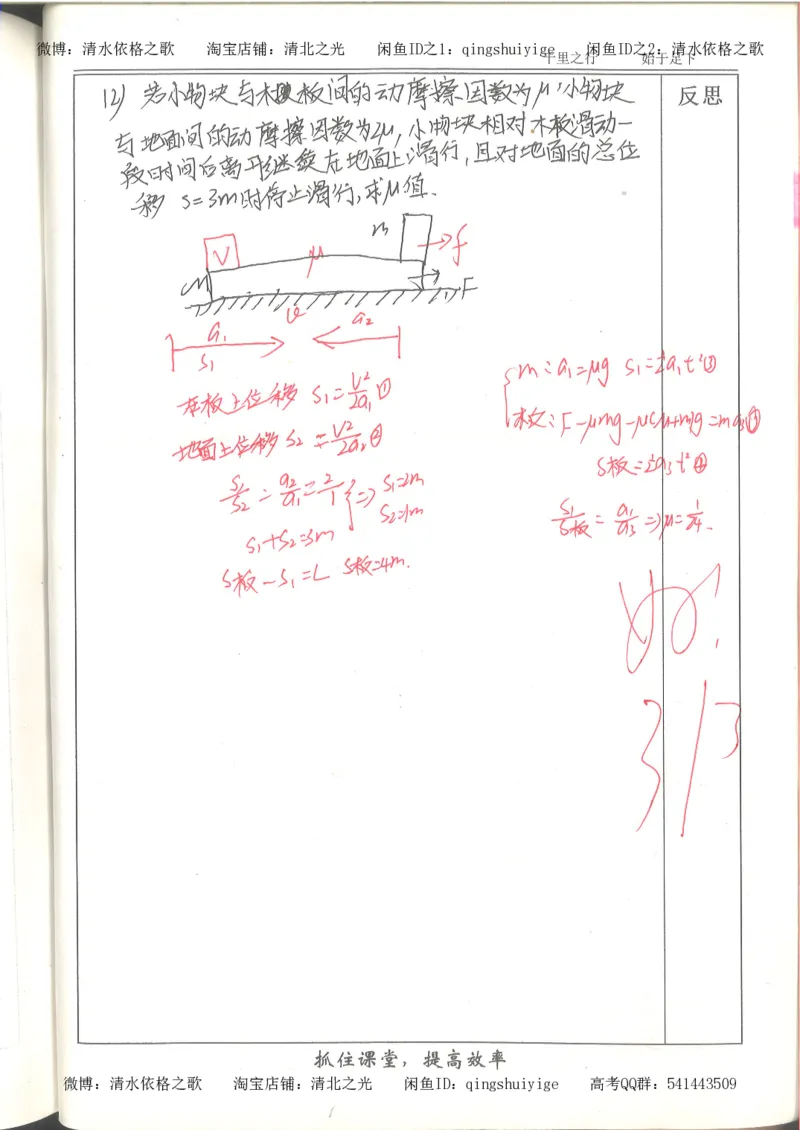 微博：清水依格之歌 淘宝店铺：清北之光 闲鱼ID之1：qingshuiyige 闲鱼ID之2：清水依格之歌
千里之行 始于足下
反思
(2) 若小物块与木板间的动摩擦因数为μ,小物块
与地面间的动摩擦因数为2μ,小物块相对木板滑动一
段时间后离开继续在地面上滑行,且对地面的总位
移 s=3m时停止滑行,求μ值.
m
V μ → f
M F
v
a₁ a₂
S₁
在板上位移 S₁=V²/2a₁ ①
地面上位移 S₂=V²/2a₂ ②
S₁/S₂=a₂/a₁=2/1 } ⇒ S₁=2m
S₂=1m
S₁+S₂=3m
S板-S₁=L S板=4m.
m: a₁=μg S₁=½a₁t²③
S板=½a₃t²④
S₁/S板=a₁/a₃⇒μ=1/24.
好!
3/3
抓住课堂，提高效率
微博：清水依格之歌 淘宝店铺：清北之光 闲鱼ID：qingshuiyige 高考QQ群：541443509